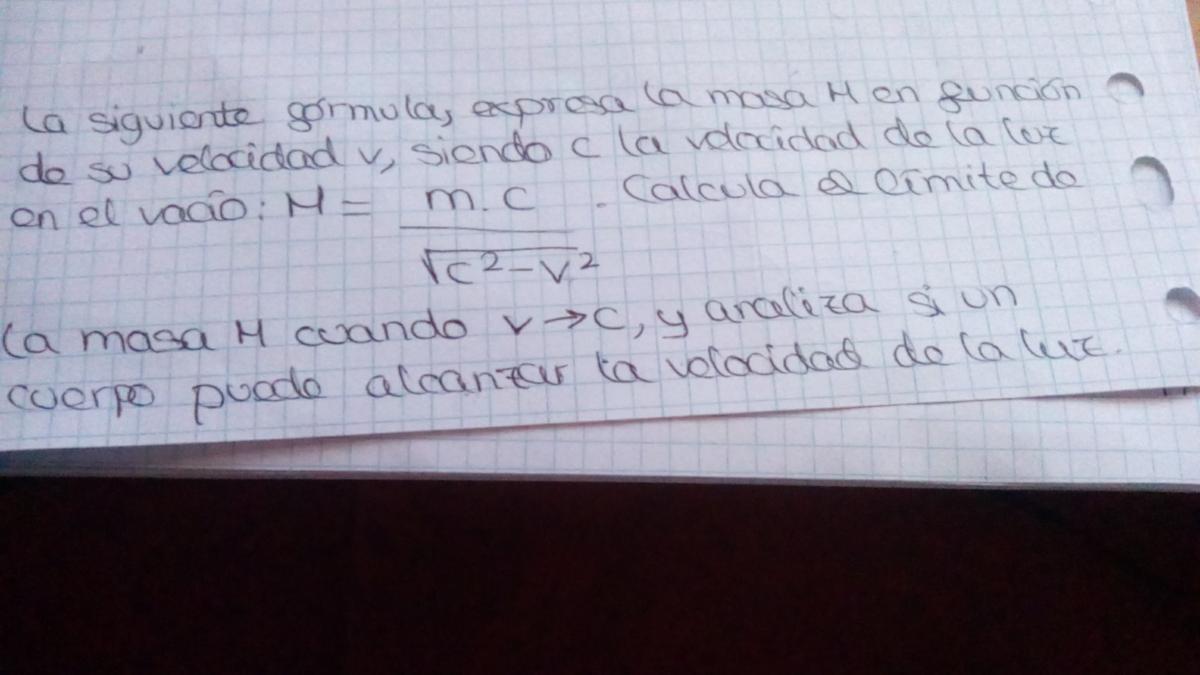 La siguiente fórmula, expresa la masa M en función
de su velocidad v, siendo c la velocidad de la luz
en el vacío: M = m.c / √c²-v² . Calcula el límite de
la masa M cuando v→c, y analiza si un
cuerpo puede alcanzar la velocidad de la luz.